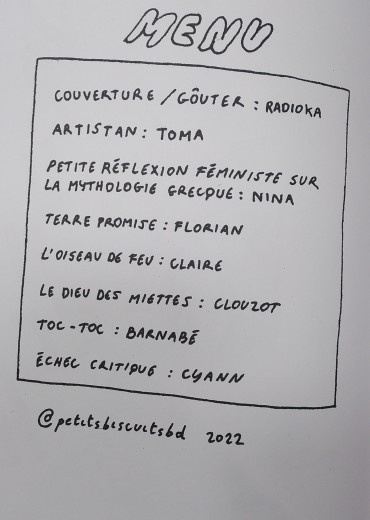 MENU
COUVERTURE / GÔUTER : RADIOKA
ARTISTAN : TOMA
PETITE RÉFLEXION FÉMINISTE SUR
LA MYTHOLOGIE GRECQUE : NINA
TERRE PROMISE : FLORIAN
L'OISEAU DE FEU : CLAIRE
LE DIEU DES MIETTES : CLOUZOT
TOC-TOC : BARNABÉ
ÉCHEC CRITIQUE : CYANN
@petits.biscuitsbd 2022